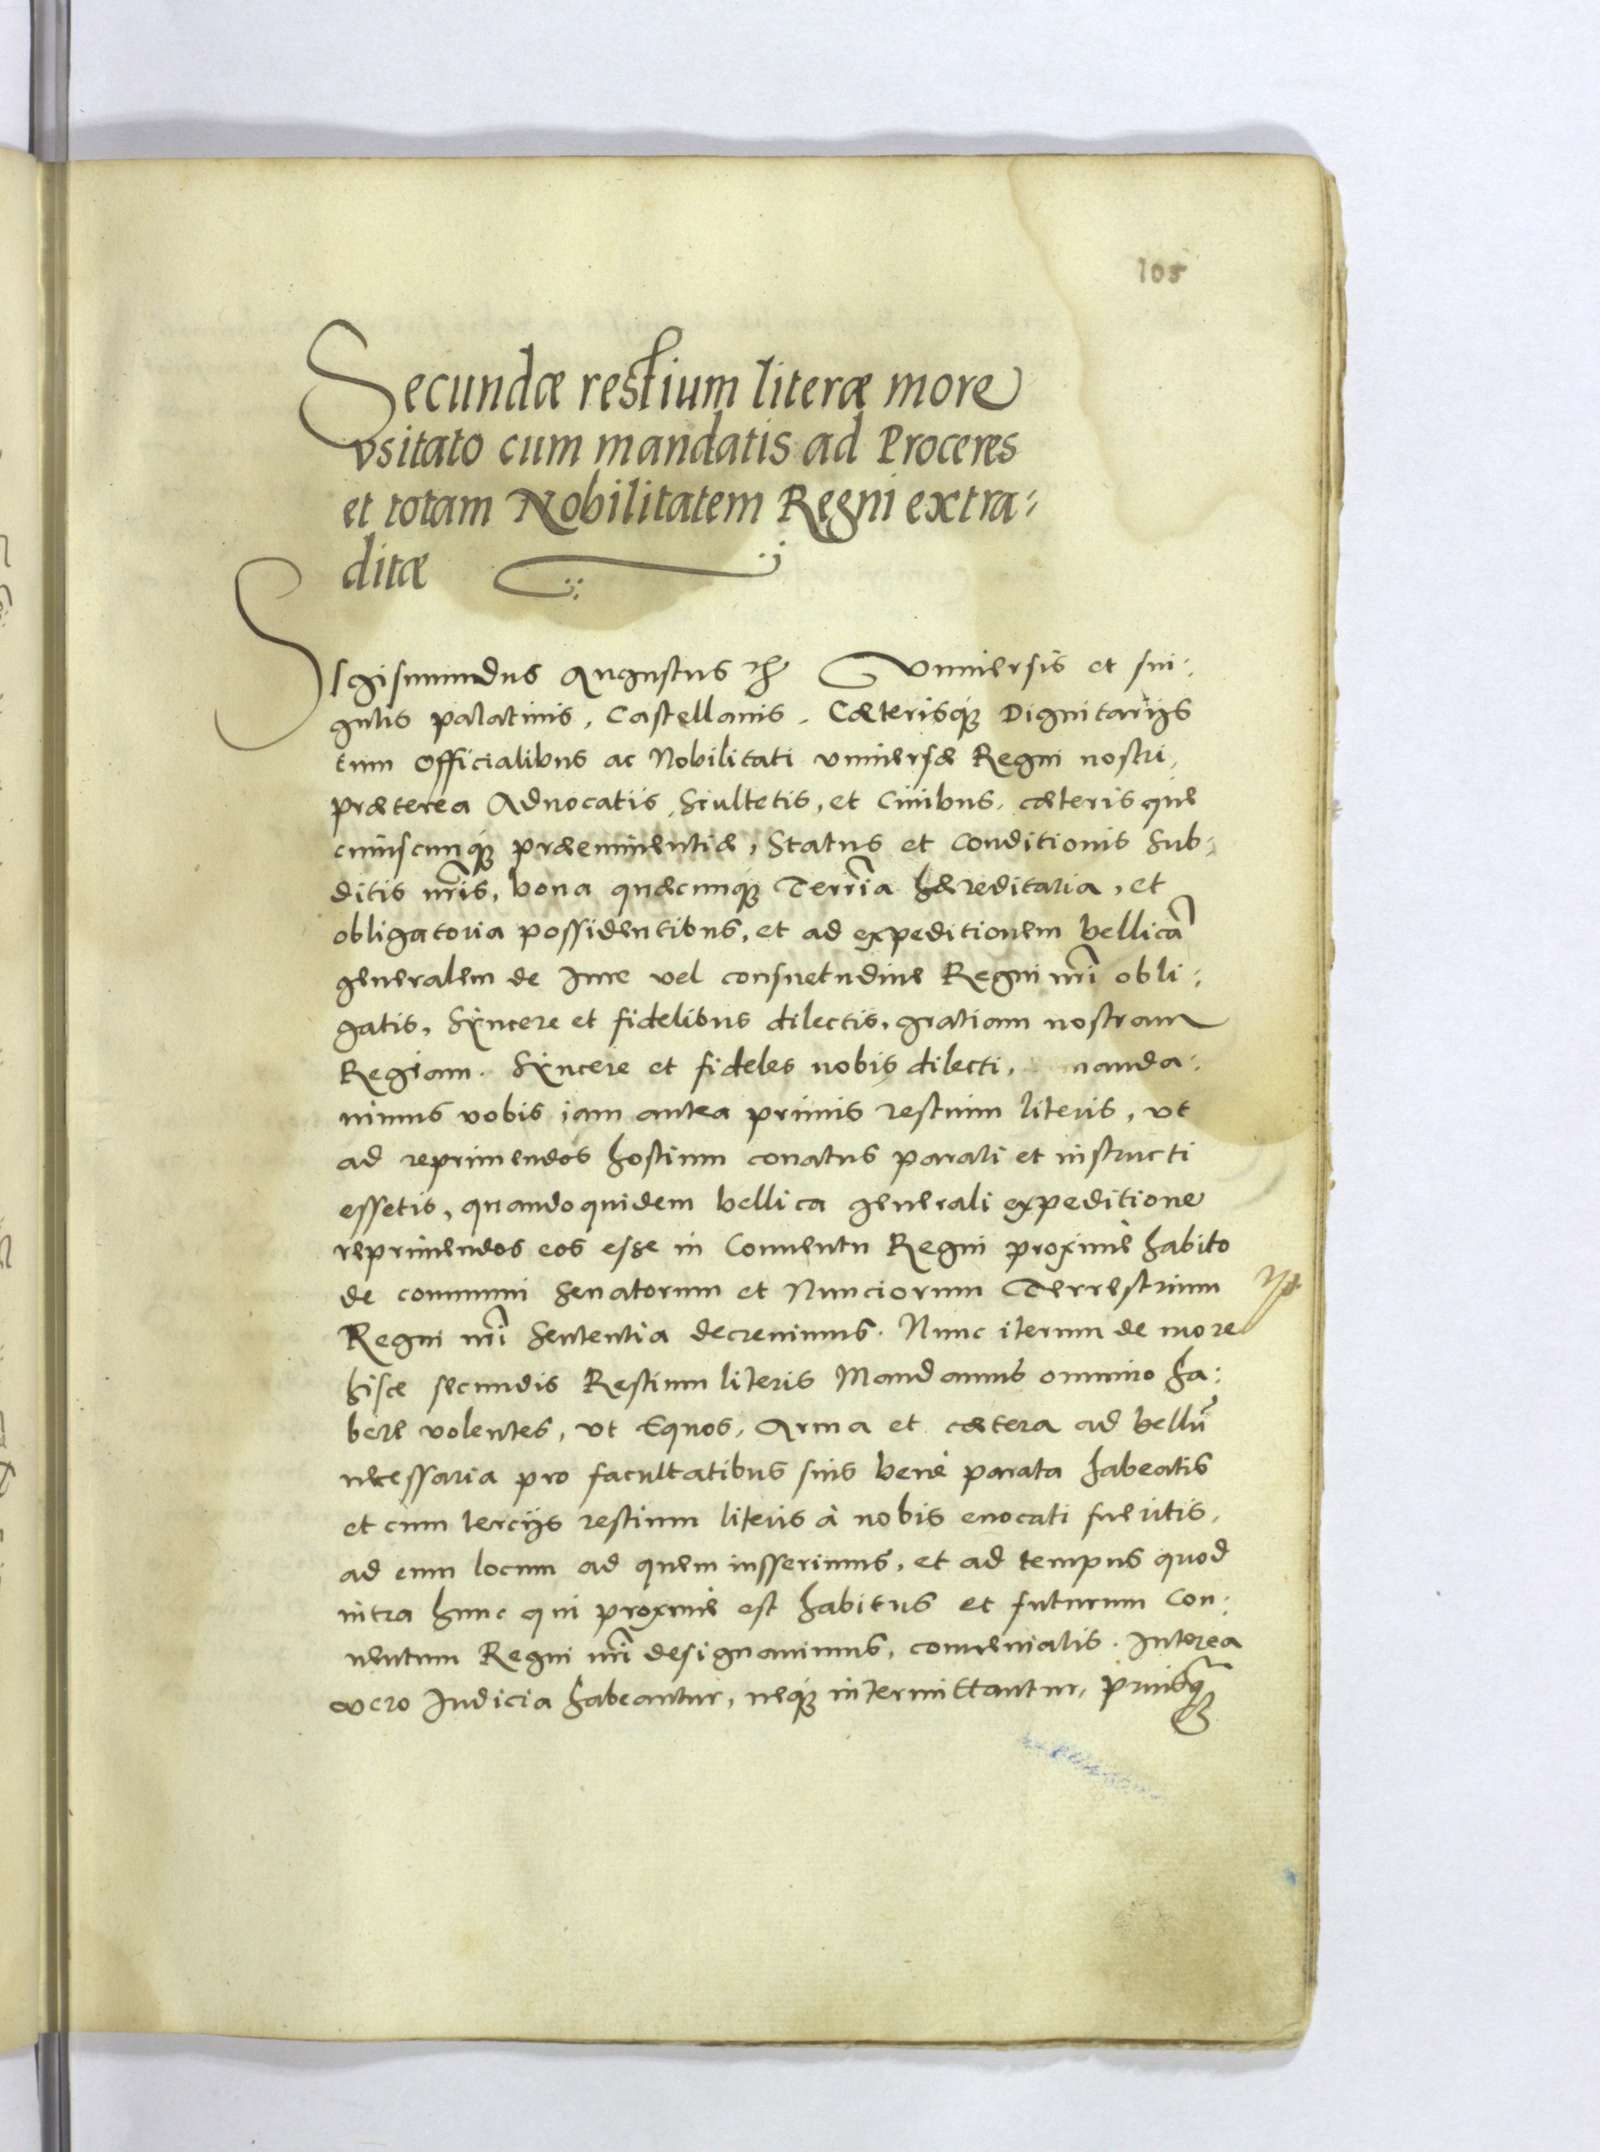 105
Secundæ restium literæ more
vsitato cum mandatis ad Proceres
et totam Nobilitatem Regni extra-
ditæ
Sigismundus Augustus Vniuersis et sin-
gulis palatinis, Castellanis, Cæterisq́ue Dignitarijs
tum Officialibus ac Nobilitati vniuersæ Regni nostri,
præterea Aduocatis, Scultetis, et Ciuibus, cæterisque
cuiuscunq́ue præeminentiæ, Status et Conditionis Sub-
ditis nr̃is, bona quæcunq́ue Terrr̃ia hæreditaria, et
obligatoria possidentibus, et ad expeditionem bellicã
generalem de Iure vel consuetudine Regni nr̃i obli-
gatis, Syncere et fidelibus dilectis, gratiam nostram
Regiam. Syncere et fideles nobis dilecti, manda-
uimus vobis iam antea primis restium literis, vt
ad reprimendos hostium conatus parati et instructi
essetis, quandoquidem bellica generali expeditione
reprimendos eos esse in Conuentu Regni proximè habito
de communi Senatorum et Nunciorum Terrestrium
Regni nr̃i Sententia decreuimus. Nunc iterum de more
hisce secundis Restium literis Mandamus omnino ha-
bere volentes, vt Equos, Arma et cætera ad bellũ
necessaria pro facultatibus suis benè parata habeatis
et cum tercijs restium literis à nobis euocati fueritis,
ad eum locum ad quem iusserimus, et ad tempus quod
intra hunc qui proximè est habitus et futurum Con-
uentum Regni nr̃i designauimus, conueniatis. Interea
vero Iudicia habeantur, neq́ue intermittantur, priusq̃